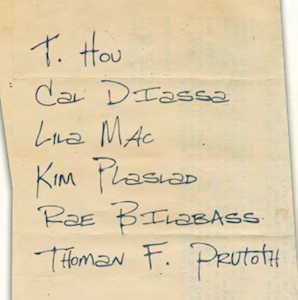 T. Hou
Cal DIassa
Lila Mac
Kim Plaslad
Rae Bilabass
Thoman F. Prutoth